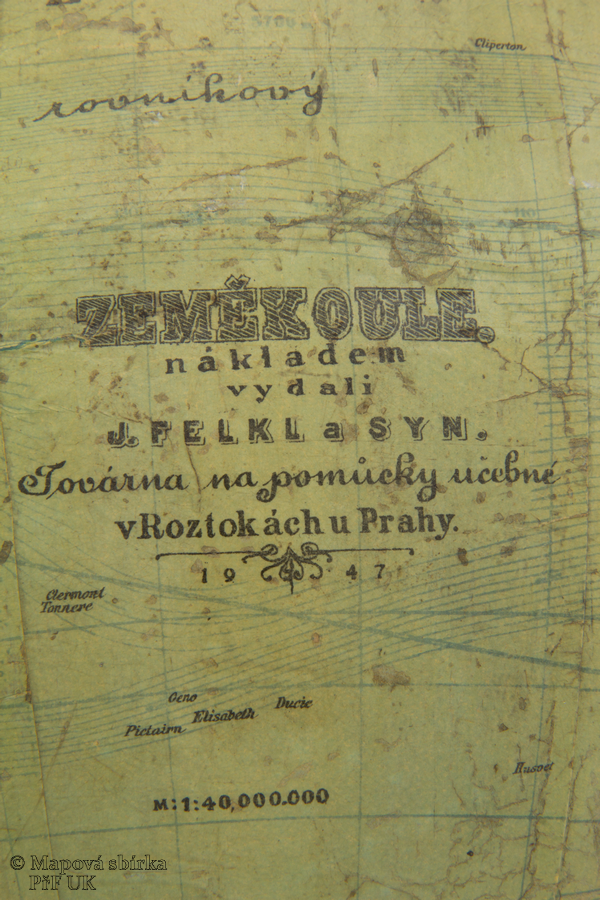 Cliperton
rovníkový
ZEMĚKOULE.
nákladem
vydali
J. FELKL a SYN.
Továrna na pomůcky učebné
v Roztokách u Prahy.
1947
Clermont
Tonnere
Oeno
Elisabeth
Ducie
Pictairn
M:1:40,000.000
© Mapová sbírka
PřF UK